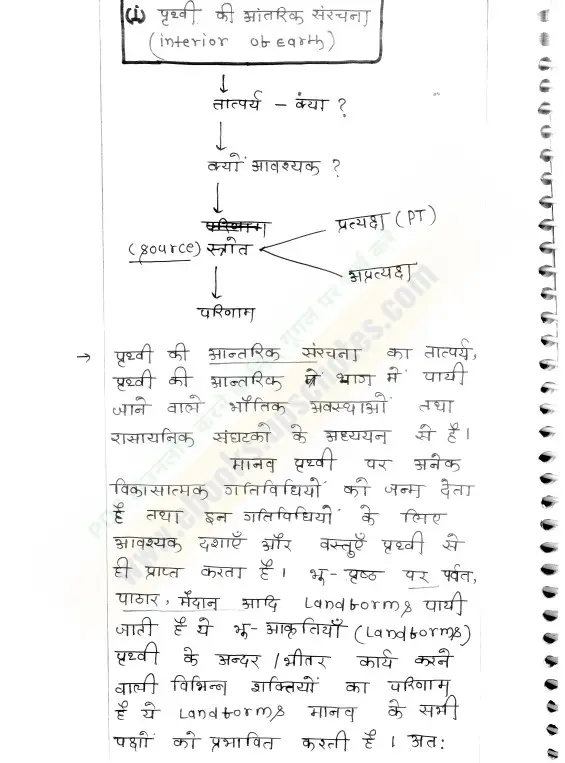 (i) पृथ्वी की आंतरिक संरचना
(interior of earth)
तात्पर्य - क्या ?
क्यों आवश्यक ?
प्रत्यक्ष (PT)
(source) स्त्रोत
अप्रत्यक्ष
परिणाम
→ पृथ्वी की आन्तरिक संरचना का तात्पर्य,
पृथ्वी की आन्तरिक भाग में पायी
जाने वाले भौतिक अवस्थाओं तथा
रासायनिक संघटको के अध्ययन से है।
मानव पृथ्वी पर अनेक
विकासात्मक गतिविधियों को जन्म देता
है तथा इन गतिविधियों के लिए
आवश्यक दशाएँ और वस्तुएँ पृथ्वी से
ही प्राप्त करता है। भू-पृष्ठ पर पर्वत,
पाठार, मैदान आदि Landforms पायी
जाती है ये भू-आकृतियाँ (Landforms)
पृथ्वी के अन्दर /भीतर कार्य करने
वाली विभिन्न शक्तियों का परिणाम
है ये Landforms मानव के सभी
पक्षों को प्रभावित करती है । अतः